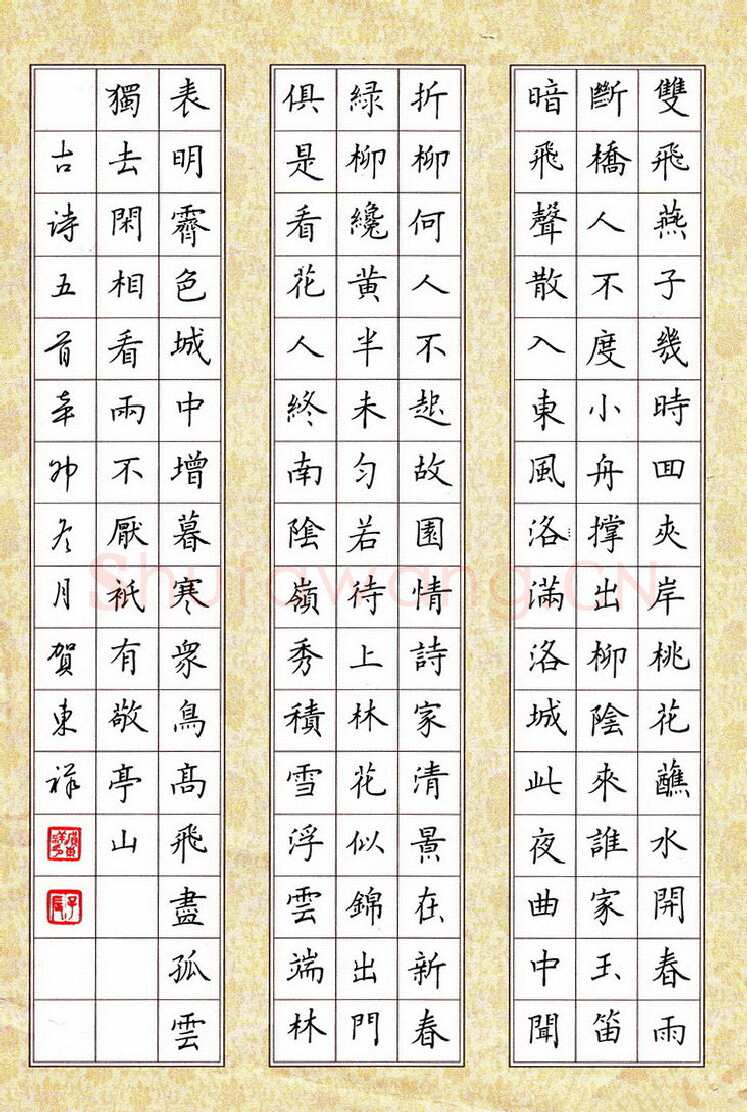 雙飛燕子幾時囬夾岸桃花蘸水開春雨
斷橋人不度小舟撑出柳陰來誰家玉笛
暗飛聲散入東風洛滿洛城此夜曲中聞
折柳何人不起故園情詩家清景在新春
緑柳纔黄半未匀若待上林花似錦出門
俱是看花人終南陰嶺秀積雪浮雲端林
表明霽色城中增暮寒衆鳥高飛盡孤雲
獨去閑相看兩不厭衹有敬亭山
古诗五首辛卯冬月賀東祥
Shufawang.CN